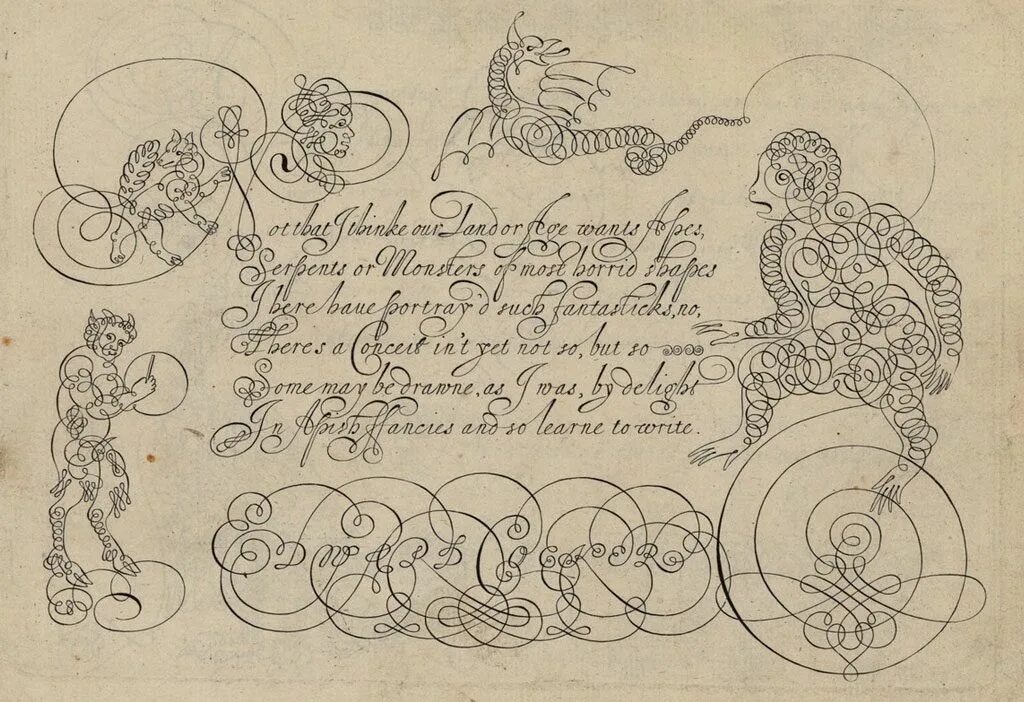 Not that I thinke our Land or Age wants Apes,
Serpents or Monsters of most horrid shapes
I here haue portray'd such fantasticks, no,
Theres a Conceit in't yet not so, but so
Some may be drawne, as I was, by delight
In Apish ffancies and so learne to write.
EDWARD COCKER